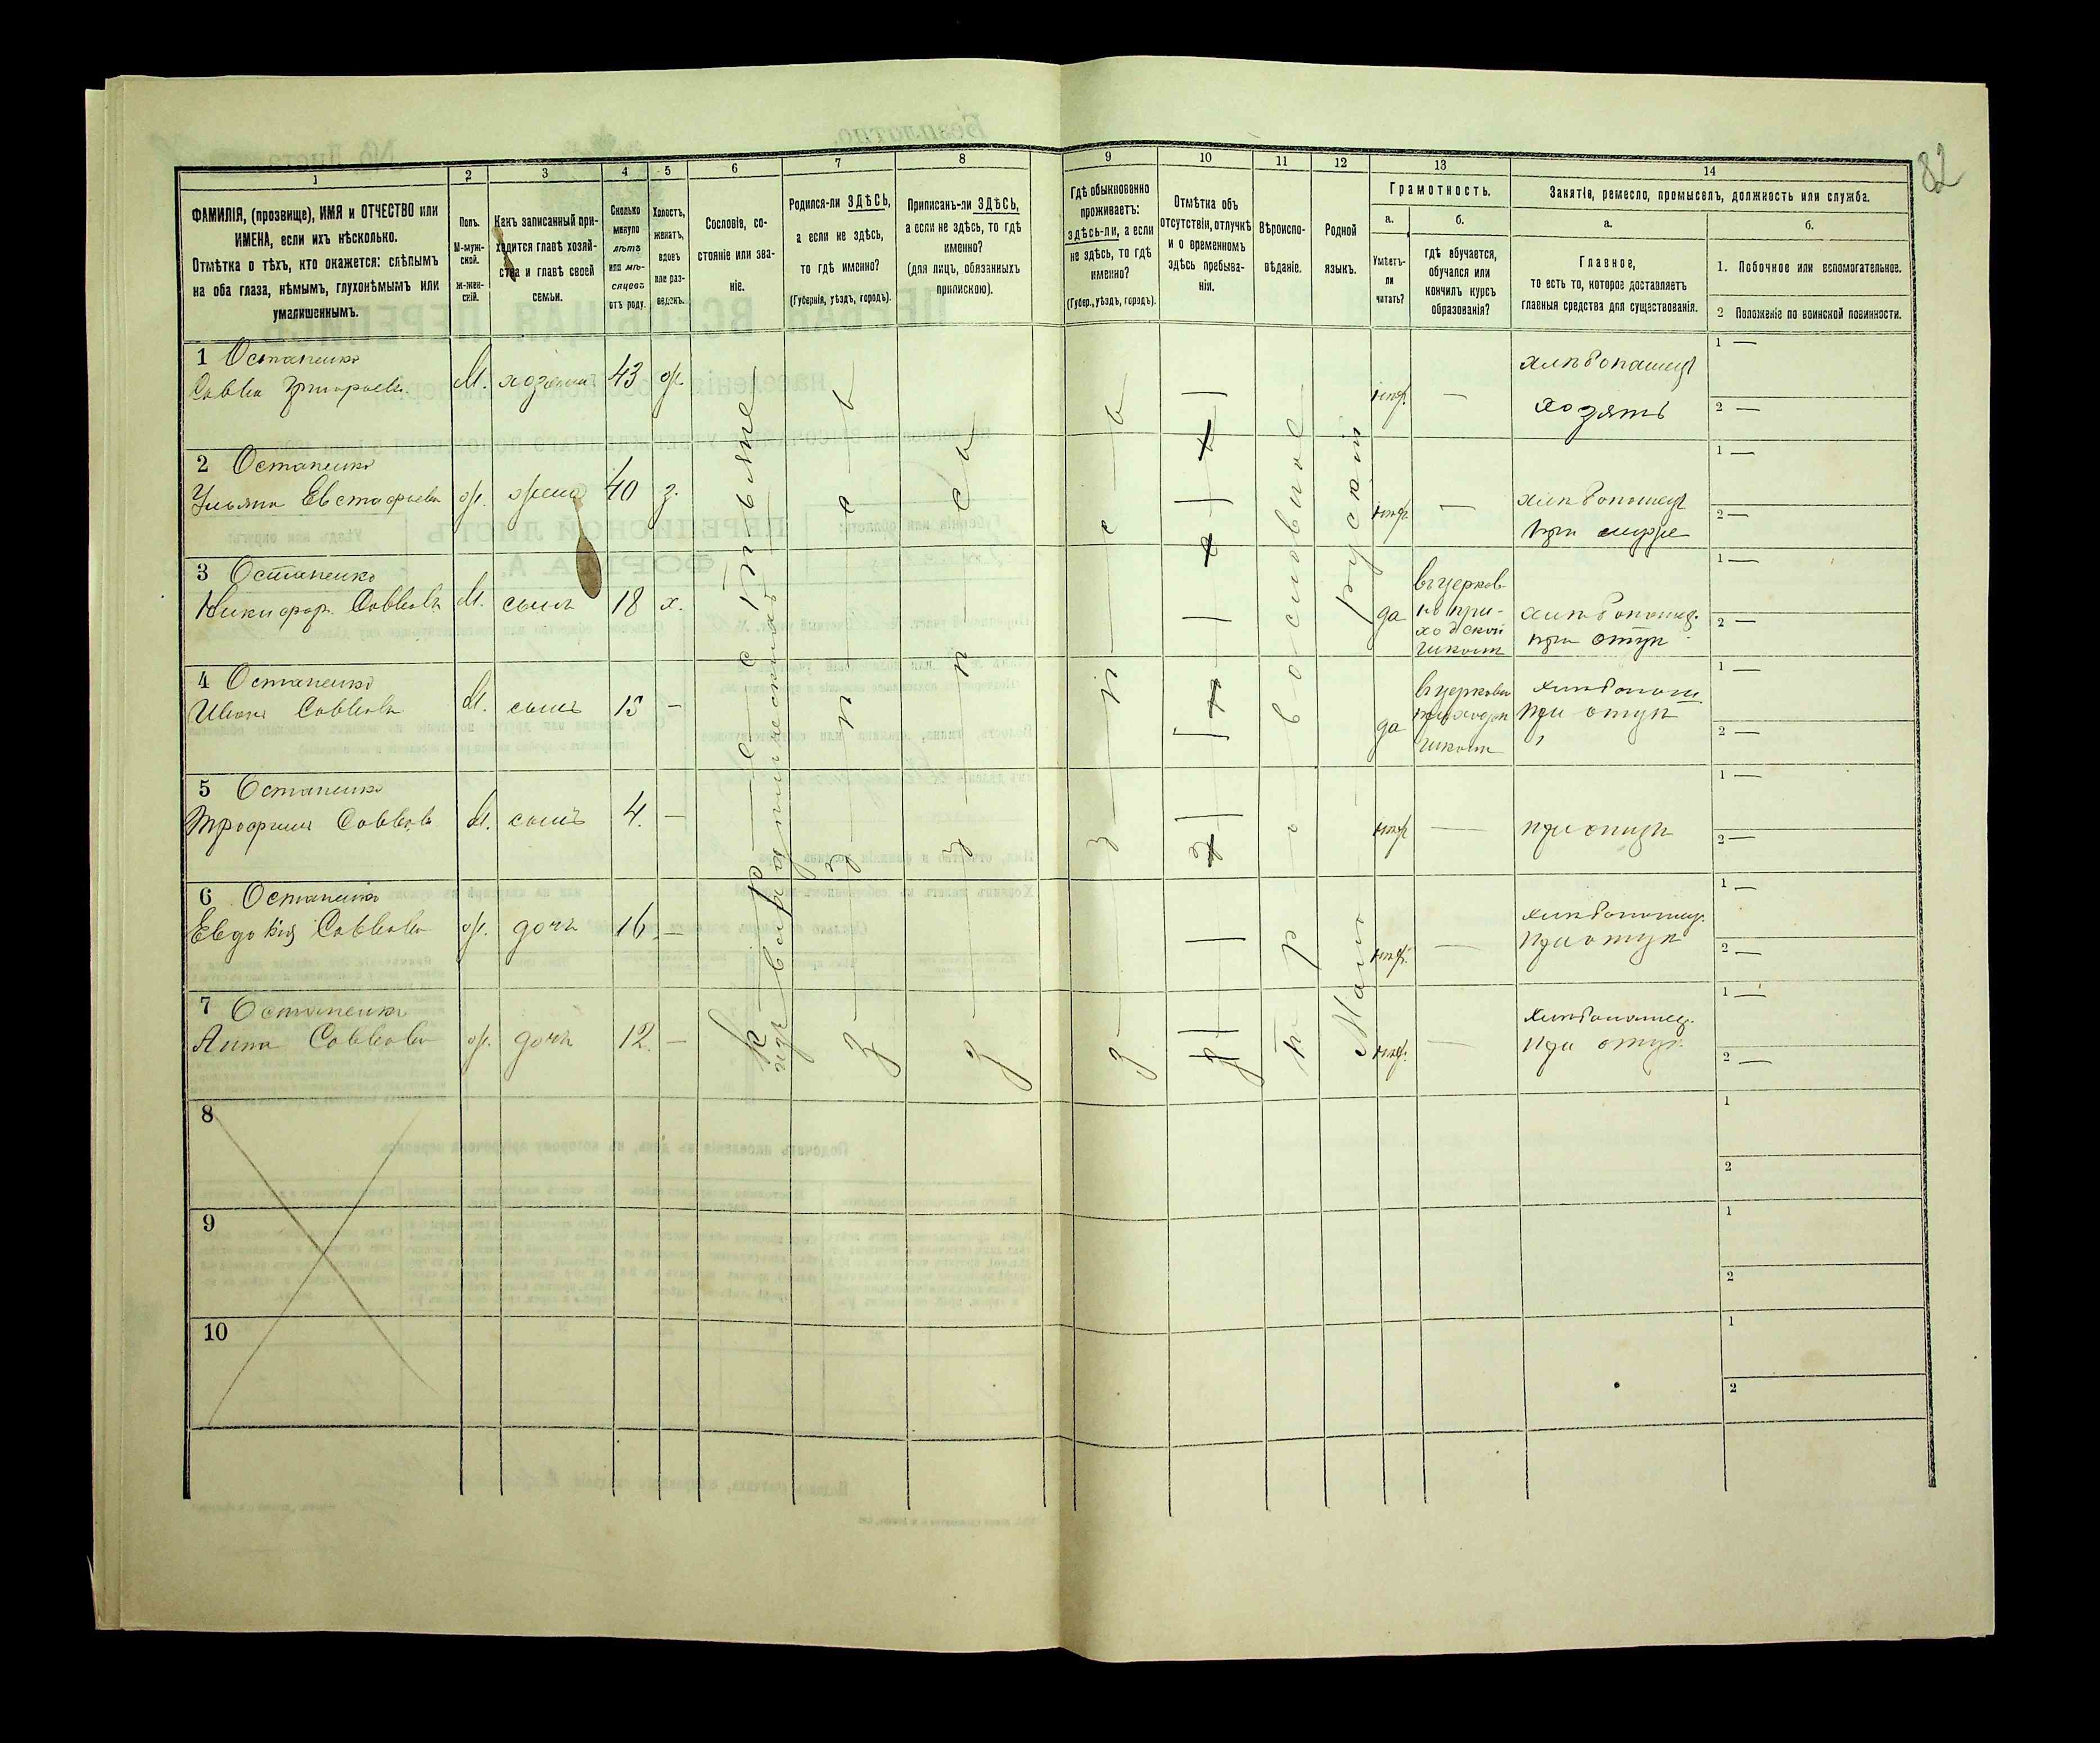 82
1 2 3 4 5 6 7 8 9 10 11 12 13 14
ФАМИЛІЯ, (прозвище), ИМЯ и ОТЧЕСТВО или
ИМЕНА, если ихъ нѣсколько.
Отмѣтка о тѣхъ, кто окажется: слѣпымъ
на оба глаза, нѣмымъ, глухонѣмымъ или
умалишеннымъ.
Полъ.
М-муж-
ской.
Ж-жен-
скій.
Какъ записанный при-
ходится главѣ хозяй-
ства и главѣ своей
семьи.
Сколько
минуло
лѣтъ
или мѣ-
сяцевъ
отъ роду.
Холостъ,
женатъ,
вдовъ
или раз-
веденъ.
Сословіе, со-
стояніе или зва-
ніе.
Родился-ли ЗДѢСЬ,
а если не здѣсь,
то гдѣ именно?
(Губернія, уѣздъ, городъ).
Приписанъ-ли ЗДѢСЬ,
а если не здѣсь, то гдѣ
именно?
(для лицъ, обязанныхъ
припискою).
Гдѣ обыкновенно
проживаетъ:
здѣсь-ли, а если
не здѣсь, то гдѣ
именно?
(Губер., уѣздъ, городъ).
Отмѣтка объ
отсутствіи, отлучкѣ
и о временномъ
здѣсь пребыва-
ніи.
Вѣроиспо-
вѣданіе.
Родной
языкъ.
Грамотность.
а.
Умѣетъ-
ли
читать?
б.
гдѣ обучается,
обучался или
кончилъ курсъ
образованія?
Занятія, ремесло, промыселъ, должность или служба.
а.
Главное,
то есть то, которое доставляетъ
главныя средства для существованія.
б.
1. Побочное или вспомогательное.
2 Положеніе по воинской повинности.
1 Остапенко
Савва Григорьевъ М. хозяинъ 43 ж. нѣтъ — хлѣбопашец
хозяинъ
1 —
2 —
2 Остапенко
Ульяна Евстафьева ж. жена 40 з. нѣтъ — хлѣбопашец
при мужѣ
1 —
2 —
3 Остапенко
Никифор. Саввовъ М. сынъ 18 х. да въ церков-
но при-
ходской
школѣ
хлѣбопашец.
при отцѣ
1 —
2 —
4 Остапенко
Иванъ Саввовъ М. сынъ 15 — да въ церковно
приходск
школѣ
хлѣбопаш
при отцѣ
1 —
2 —
5 Остапенко
Трофимъ Саввовъ М. сынъ 4. — нѣтъ — при отцѣ
1 —
2 —
6 Остапенко
Евдокія Саввова ж. дочь 16 — нѣтъ — хлѣбопашец.
при отцѣ
1 —
2 —
7 Остапенко
Анна Саввова ж. дочь 12. — нѣтъ — хлѣбопашец.
при отцѣ
1 —
2 —
крестьяне
изъ
здесь
здесь
здесь
православное
Малорускій
8
1
2
9
1
2
10
1
2